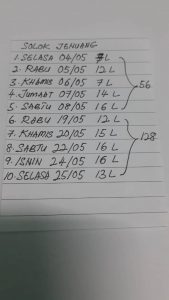 SOLOK JENUANG
1. SELASA 04/05 7 L
2. RABU 05/05 12 L
3. KHAMIS 06/05 7 L
4. JUMAAT 07/05 14 L
5. SABTU 08/05 16 L
56
6. RABU 19/05 12 L
7. KHAMIS 20/05 15 L
8. SABTU 22/05 16 L
9. ISNIN 24/05 16 L
10. SELASA 25/05 13 L
128